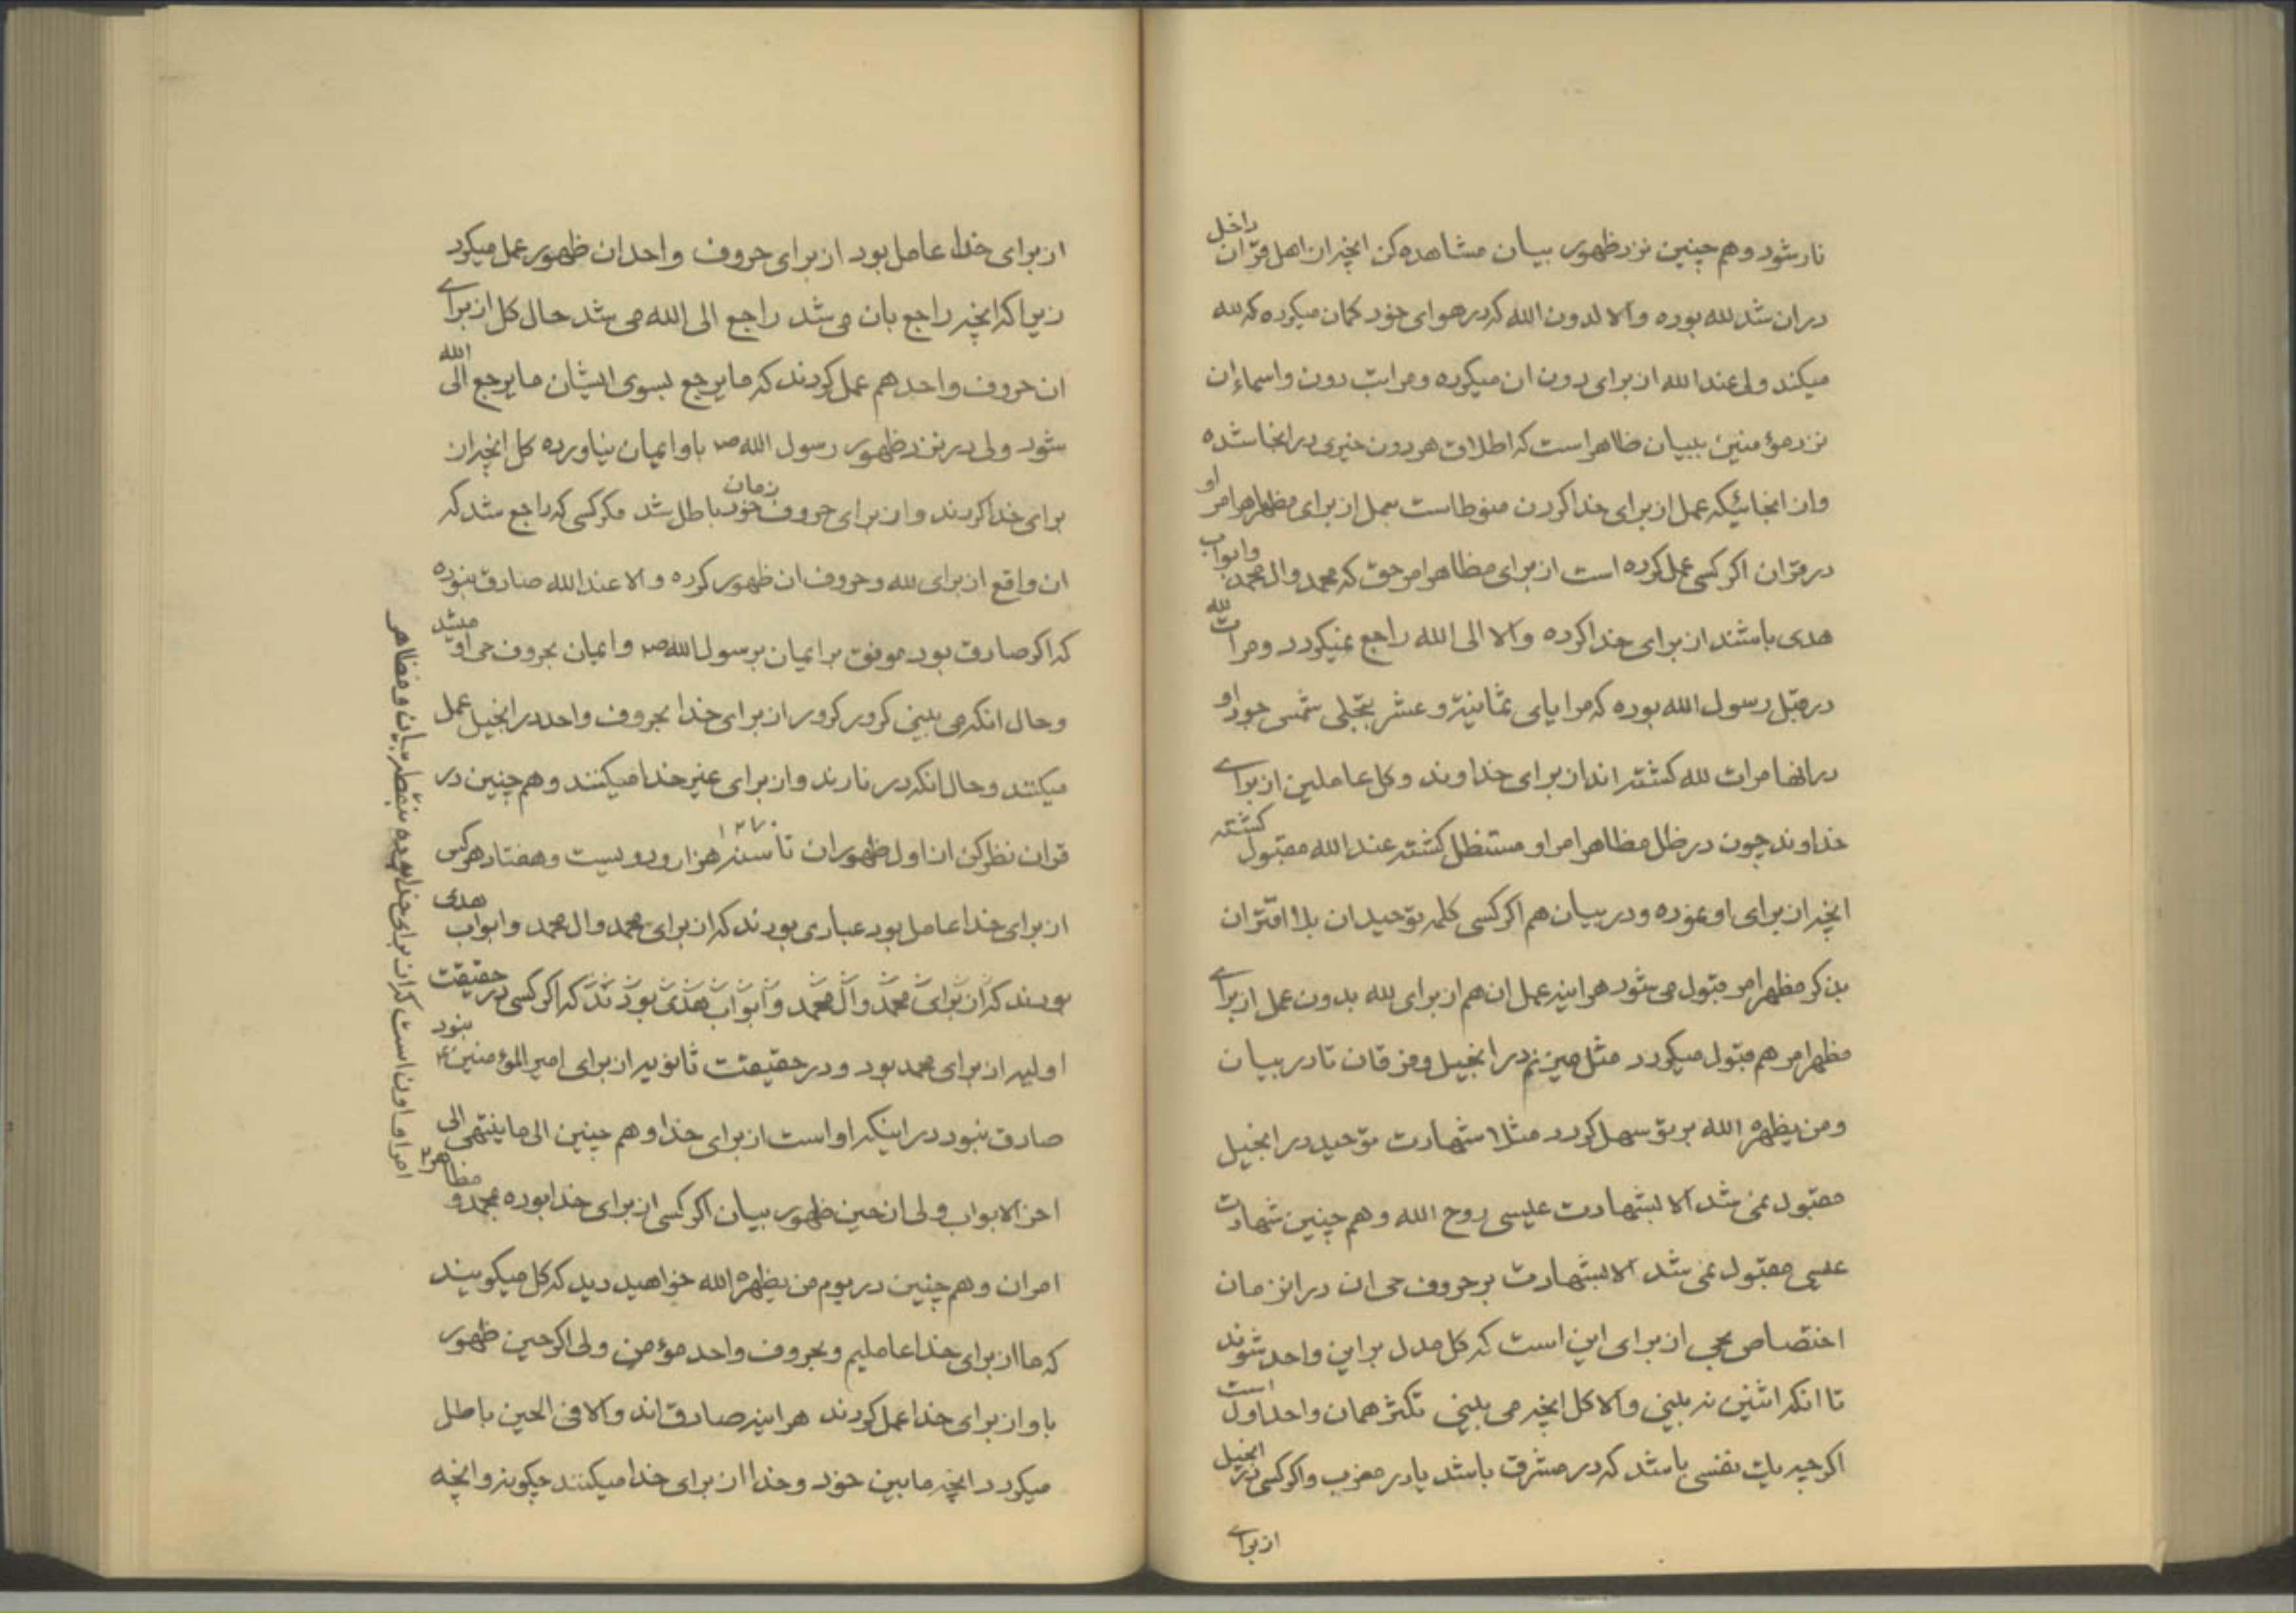 نار شود و هم چنین نزد ظهور بیان مشاهده کن انچه از اهل قران داخل
در ان شد لله بوده والا لدون الله که در هوای خود کمان میکرده که لله
میکند ولی عند الله از برای دون ان میکرده و مراتب دون و اسماء ان
نزد مؤمنین ببیان ظاهر است که اطلاق هر دون خیری در انجا شده
و از انجائیکه عمل از برای خدا کردن منوط است بعمل از برای مظهر امر او
در قران اکر کسی عمل کرده است از برای مظاهر امر حق که محمد و ال محمد و ابواب
هدی باشند از برای خدا کرده والا الی الله راجع نمیکردد و مرات لله
در قبل رسول الله بوده که مرایای ثمانیة و عشر بتجلی شمس جود او
در انها مرات لله کشته اند از برای خداوند و کل عاملین از برای
خداوند چون در ظل مظاهر امر او مستظل کشته عند الله مقبول کشته
انچه از برای او نموده و در بیان هم اکر کسی کلمه توحید ان بلا اقتران
بذکر مظهر امر قبول می شود هراینه عمل ان هم از برای لله بدون عمل از برای
مظهر امر هم قبول میکردد مثل میزنم در انجیل و فرقان تا در بیان
و من یظهره الله بر تو سهل کردد مثلا شهادت توحید در انجیل
مقبول نمی شد الا بشهادت عیسی روح الله و هم چنین شهادت
عیسی مقبول نمی شد الا بشهادت بر حروف حی ان در انزمان
اختصاص بحی از برای این است که کل مدل براین واحد شوند
تا انکه اثنین نه بینی والا کل انچه می بینی تکثر همان واحد اول است
اکرچه یک نفسی باشد که در مشرق باشد یا در مغرب و اکر کسی در انجیل
از برای
از برای خدا عامل بود از برای حروف واحد ان ظهور عمل میکرد
زیرا که انچه راجع بان می شد راجع الی الله می شد حال کل از برای
ان حروف واحد هم عمل کردند که ما یرجع بسوی ایشان ما یرجع الی الله
شود ولی در نزد ظهور رسول الله ص باو ایمان نیاورده کل انچه از
برای خدا کردند و از برای حروف زمان خود باطل شد مکر کسی که راجع شد که
ان واقع از برای لله و حروف ان ظهور کرده والا عند الله صادق نبوده
که اکر صادق بود موفق بر ایمان برسول الله ص و ایمان بحروف حی او میشد
و حال انکه می بینی کرور کرور از برای خدا بحروف واحد در انجیل عمل
میکنند و حال انکه در نارند و از برای غیر خدا میکنند و هم چنین در
قران نظر کن از اول ظهور ان تا سنه هزار و دویست و هفتاد ۱۲۷۰ هر کس
از برای خدا عامل بود عبادی بودند که از برای محمد و ال محمد و ابواب هدی
بودند که از برای محمد و ال محمد و ابواب هدی بودند که اکر کسی در حقیقت
اولیه از برای محمد بود و در حقیقت ثانویه از برای امیر المؤمنین ع نبود
صادق نبود در اینکه او است از برای خدا و هم چنین الی ما ینتهی الی
اخر الابواب ولی از حین ظهور بیان اکر کسی از برای خدا بوده بمحمد و مظاهر
امر او و اون است که از برای خدا بوده بنقطه بیان و مظاهر
امر ان و هم چنین در یوم من یظهره الله خواهید دید که کل میکویند
که ما از برای خدا عاملیم و بحروف واحد مؤمن ولی اکر حین ظهور
باو از برای خدا عمل کردند هراینه صادق اند والا فی الحین باطل
میکردد انچه مابین خود و خدا از برای خدا میکنند چکونه و انچه